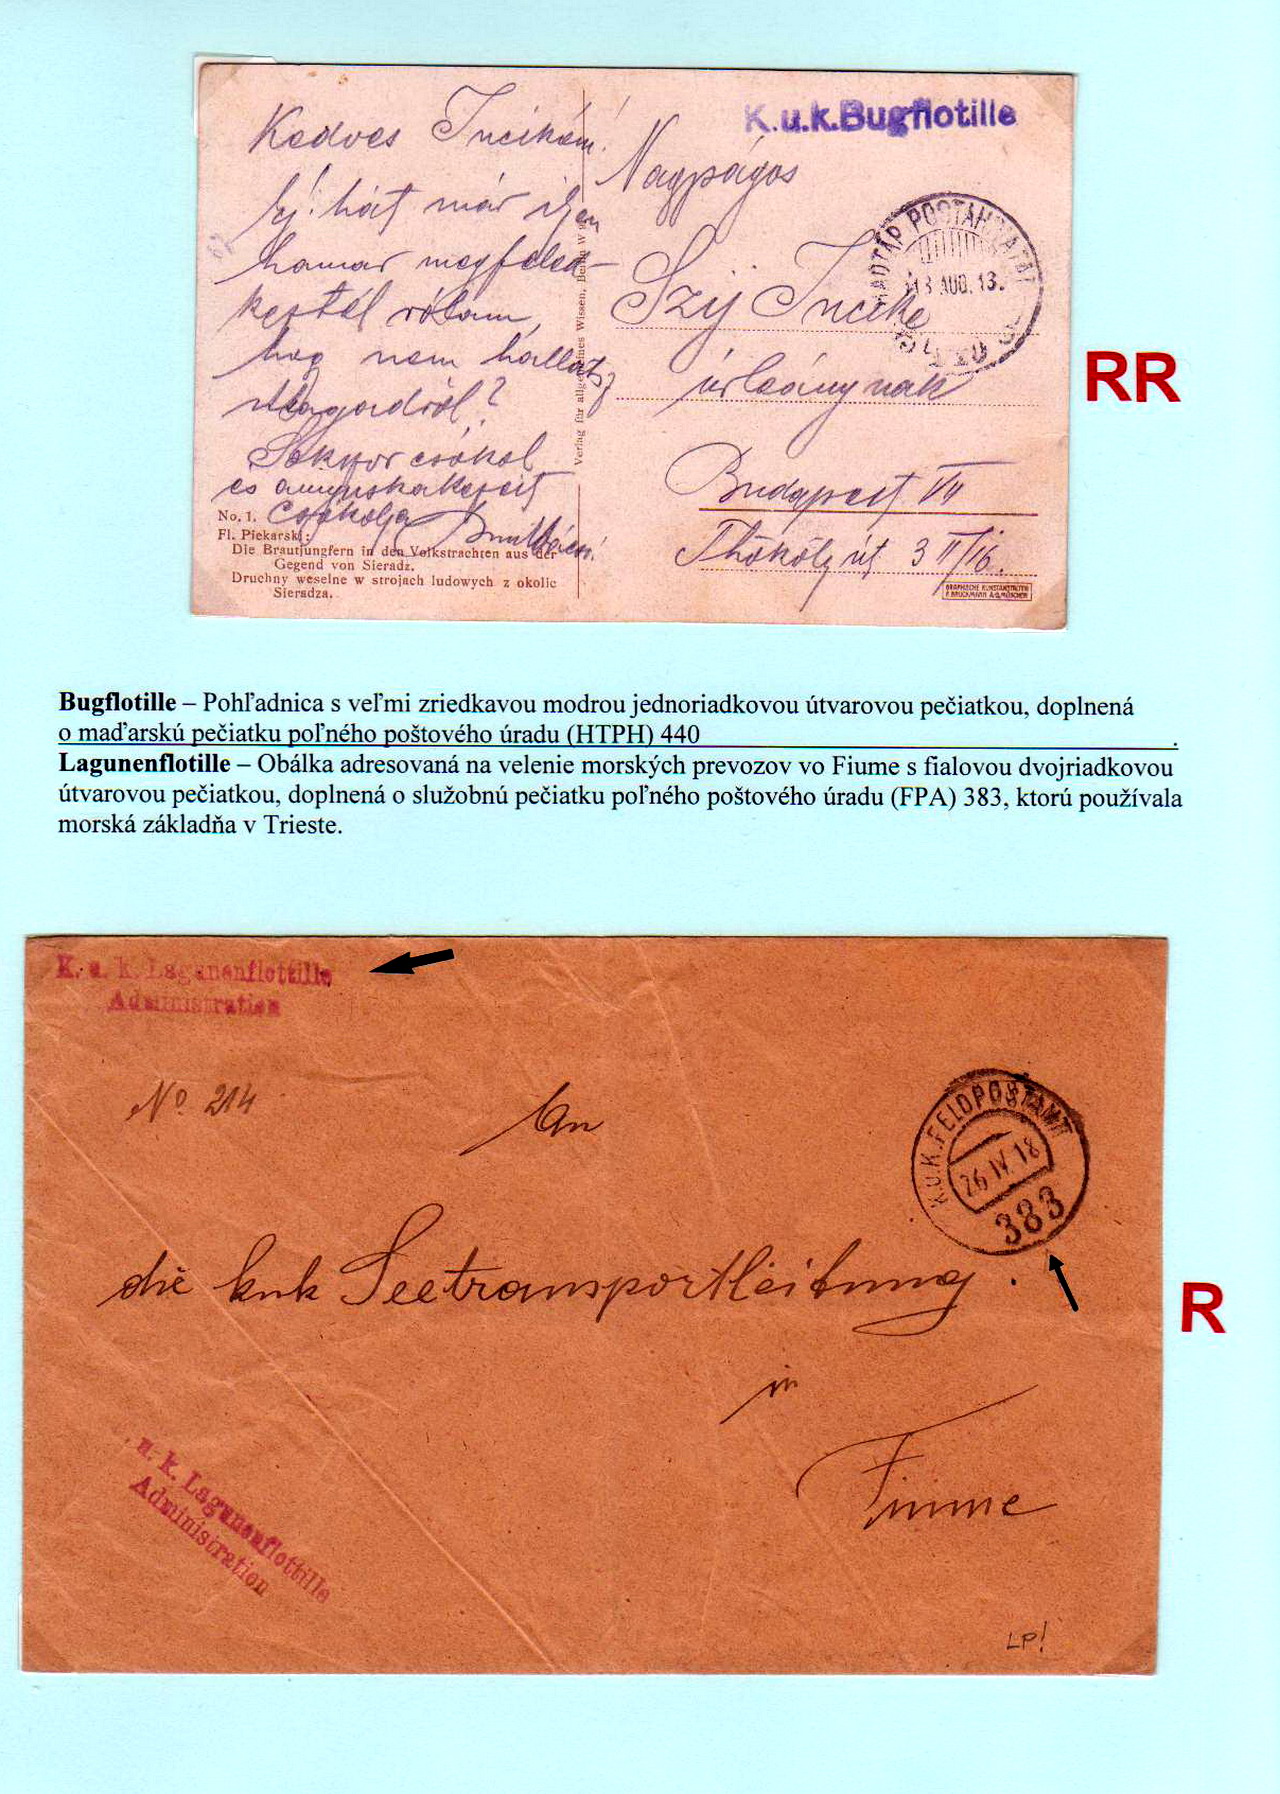 K.u.k.Bugflotille
Kedves Incikém!
Ej! hát már ilyen
hamar megfeled-
keztél rólam,
hog nem hallatsz
Magadról?
Sokszor csókol
és anyuskakezeit
csókolja
Nagyságos
Szij Incike
úrleánynak
Budapest VII
Thököly út 3 II/16.
TÁBORI POSTAHIVATAL
AUG. 13.
Verlag für allgemeines Wissen, Berlin W
No. 1.
Fl. Piekarski:
Die Brautjungfern in den Volkstrachten aus der
Gegend von Sieradz.
Druchny weselne w strojach ludowych z okolic
Sieradza.
GRAPHISCHE KUNSTANSTALTEN
F. BRUCKMANN A.G. MÜNCHEN
RR
Bugflotille – Pohľadnica s veľmi zriedkavou modrou jednoriadkovou útvarovou pečiatkou, doplnená
o maďarskú pečiatku poľného poštového úradu (HTPH) 440 .
Lagunenflotille – Obálka adresovaná na velenie morských prevozov vo Fiume s fialovou dvojriadkovou
útvarovou pečiatkou, doplnená o služobnú pečiatku poľného poštového úradu (FPA) 383, ktorú používala
morská základňa v Trieste.
K. u. k. Lagunenflottille
Administration
No 214
An
K.U.K. FELDPOSTAMT
26 IV. 18
383
die kuk Seetransportleitung.
in
Fiume
R
u. k. Lagunenflottille
Administration
LP!